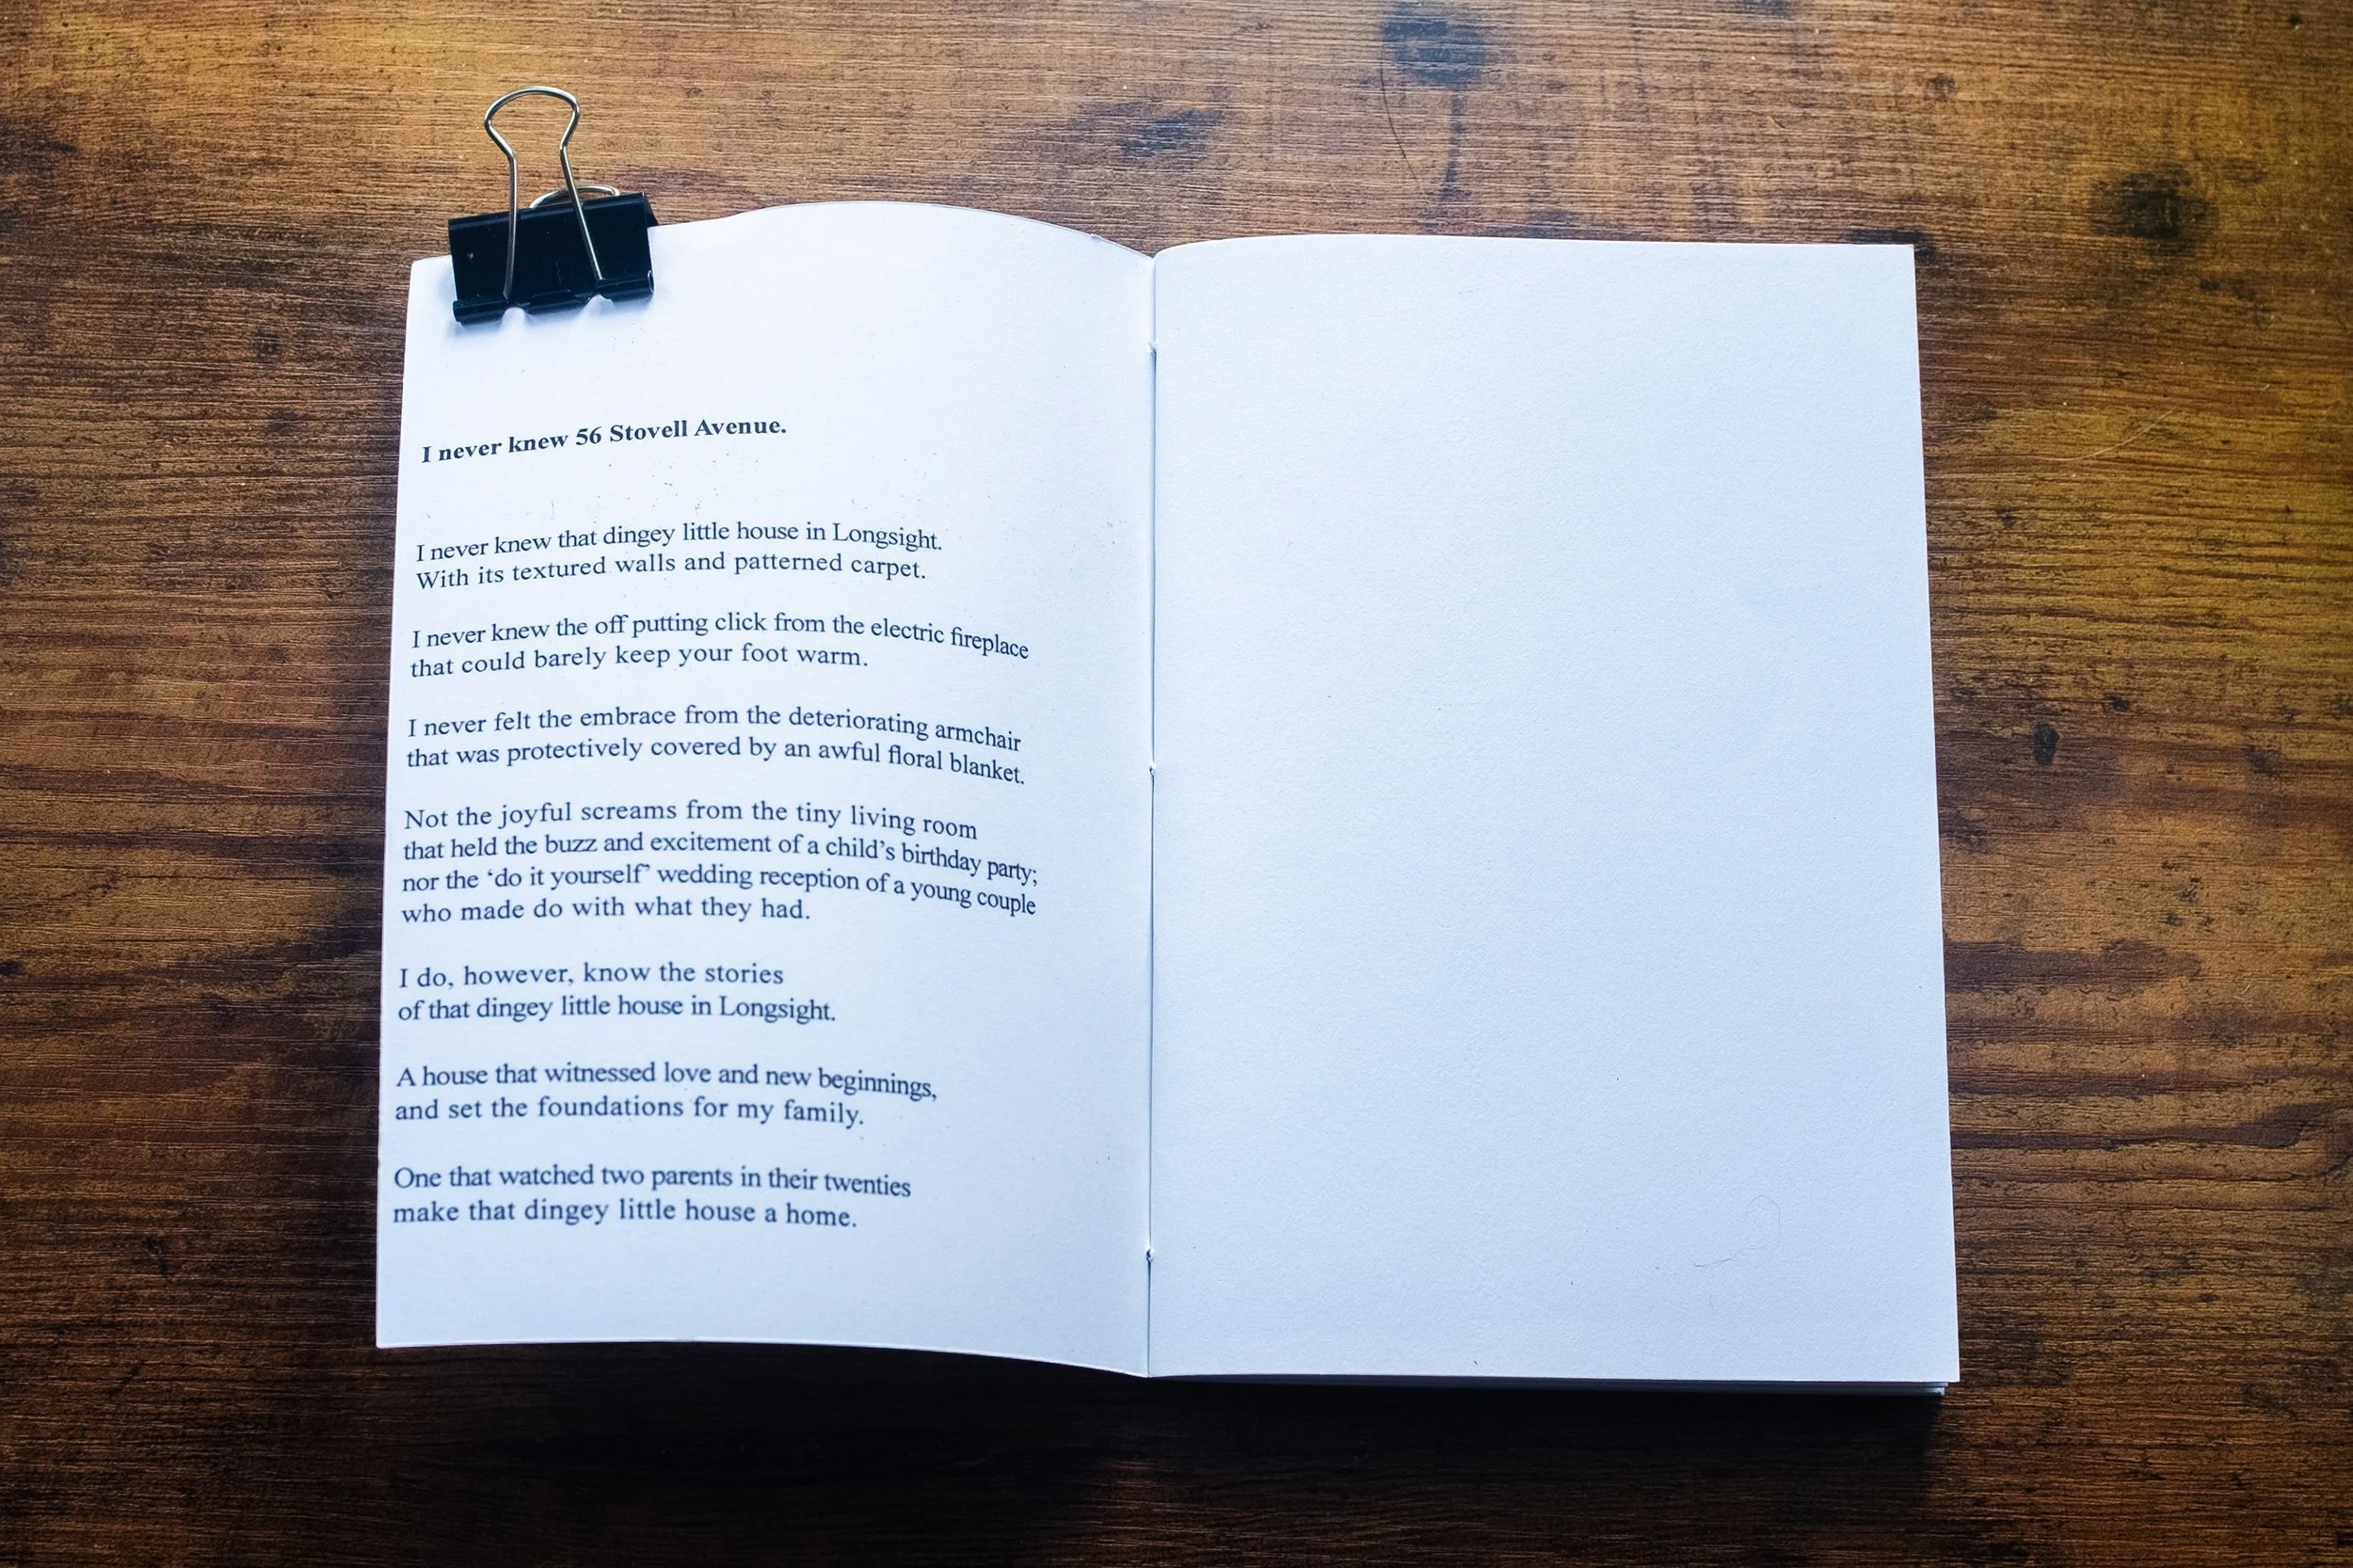 I never knew 56 Stovell Avenue.
I never knew that dingey little house in Longsight.
With its textured walls and patterned carpet.
I never knew the off putting click from the electric fireplace
that could barely keep your foot warm.
I never felt the embrace from the deteriorating armchair
that was protectively covered by an awful floral blanket.
Not the joyful screams from the tiny living room
that held the buzz and excitement of a child’s birthday party;
nor the ‘do it yourself’ wedding reception of a young couple
who made do with what they had.
I do, however, know the stories
of that dingey little house in Longsight.
A house that witnessed love and new beginnings,
and set the foundations for my family.
One that watched two parents in their twenties
make that dingey little house a home.